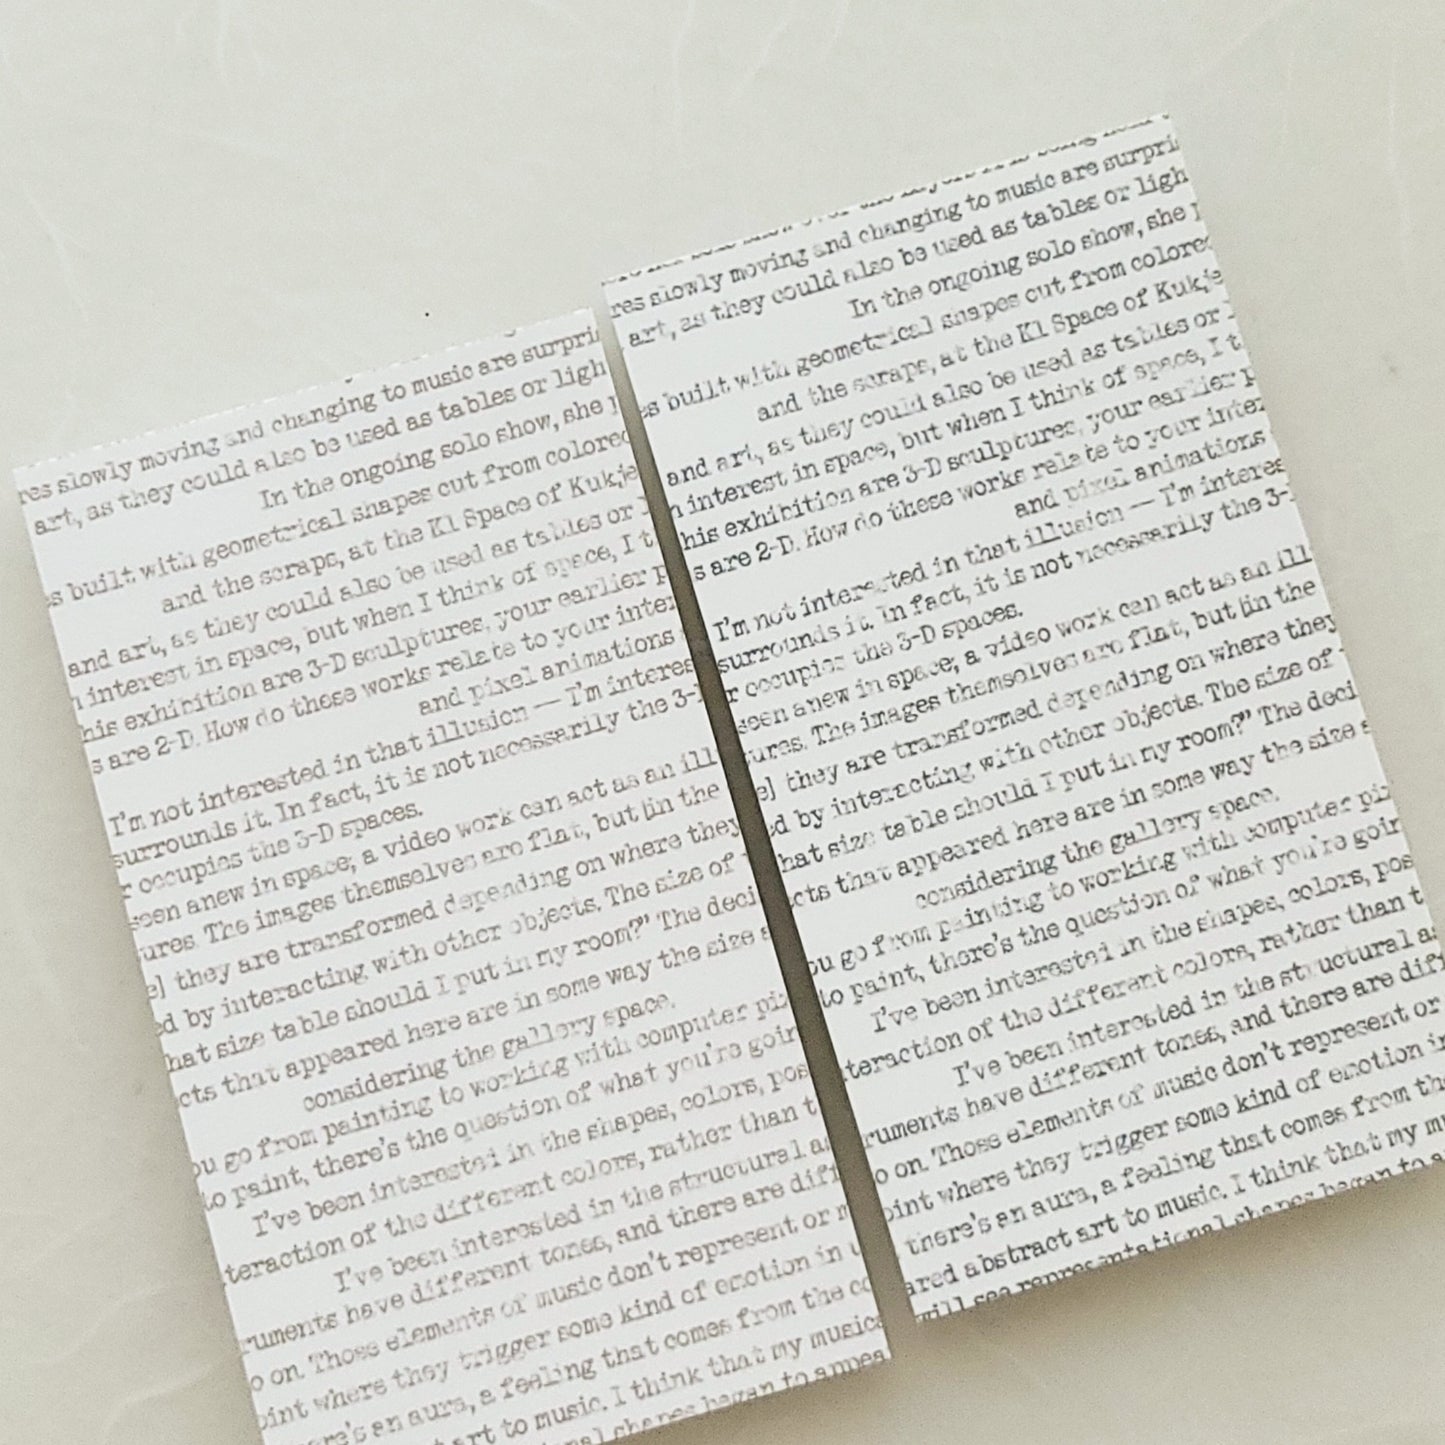 res slowly moving and changing to music are surpri
art, as they could also be used as tables or ligh
In the ongoing solo show, she
s built with geometrical shapes cut from colored
and the scraps, at the K1 Space of Kukje
and art, as they could also be used as tables or
interest in space, but when I think of space, I t
his exhibition are 3-D sculptures, your earlier p
s are 2-D. How do these works relate to your inter
and pixel animations
I'm not interested in that illusion — I'm interes
surrounds it. In fact, it is not necessarily the 3-
r occupies the 3-D spaces.
seen anew in space; a video work can act as an ill
ures. The images themselves are flat, but [in the
e] they are transformed depending on where they
ed by interacting with other objects. The size of
hat size table should I put in my room?" The deci
cts that appeared here are in some way the size
considering the gallery space.
ou go from painting to working with computer pix
to paint, there's the question of what you're goin
I've been interested in the shapes, colors, pos
teraction of the different colors, rather than t
I've been interested in the structural as
ruments have different tones, and there are diff
o on. Those elements of music don't represent or m
oint where they trigger some kind of emotion in
there's an aura, a feeling that comes from the co
art to music. I think that my musica
nal shapes began to appea
res slowly moving and changing to music are surpri
art, as they could also be used as tables or ligh
In the ongoing solo show, she
s built with geometrical shapes cut from colored
and the scraps, at the K1 Space of Kukje
and art, as they could also be used as tables or
interest in space, but when I think of space, I t
his exhibition are 3-D sculptures, your earlier p
s are 2-D. How do these works relate to your inter
and pixel animations
I'm not interested in that illusion — I'm interes
surrounds it. In fact, it is not necessarily the 3-
r occupies the 3-D spaces.
seen anew in space; a video work can act as an ill
ures. The images themselves are flat, but [in the
e] they are transformed depending on where they
ed by interacting with other objects. The size of
hat size table should I put in my room?" The deci
cts that appeared here are in some way the size
considering the gallery space.
ou go from painting to working with computer pix
to paint, there's the question of what you're goin
I've been interested in the shapes, colors, pos
teraction of the different colors, rather than t
I've been interested in the structural as
ruments have different tones, and there are diff
o on. Those elements of music don't represent or
oint where they trigger some kind of emotion in
there's an aura, a feeling that comes from th
ared abstract art to music. I think that my mu
will see representational shapes began to a